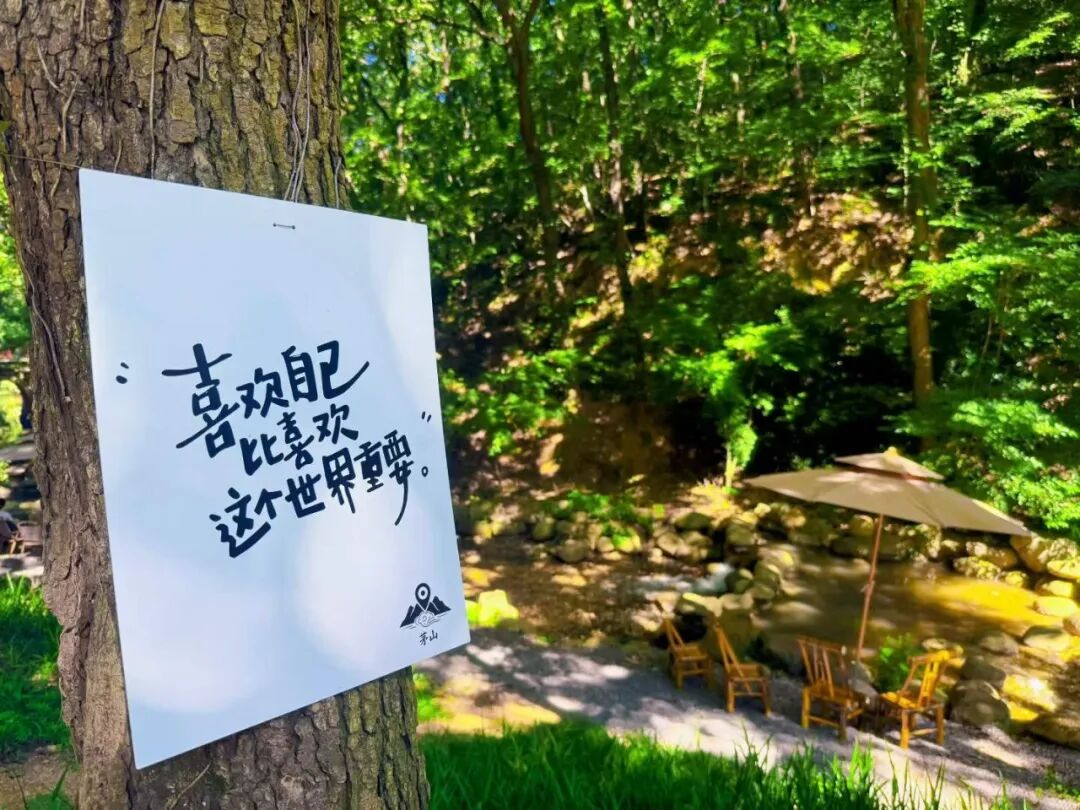 “喜欢自己
比喜欢
这个世界重要。”
茅山